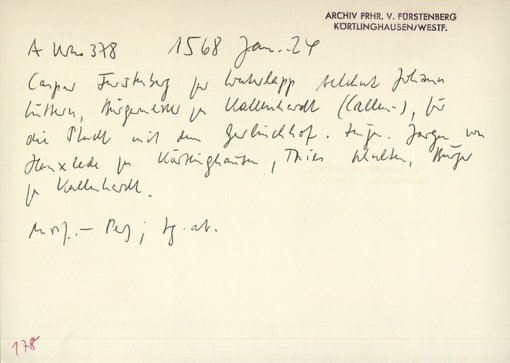 ARCHIV FRHR. V. FÜRSTENBERG
KÖRTLINGHAUSEN/WESTF.
A Urk. 378 1568 Jan. 24
Caspar Furstenberg zu Waterlapp belehnt Johann
Luttern, Bürgermeister zu Kallenhardt (Callen-), für
die Stadt mit dem Gerlinckhof. Zeugen: Jurgen von
Hanxlede zu Körtlinghausen, Thies Schulten, Bürger
zu Kallenhardt.
Ausf. - Perg; Sg. ab.
178